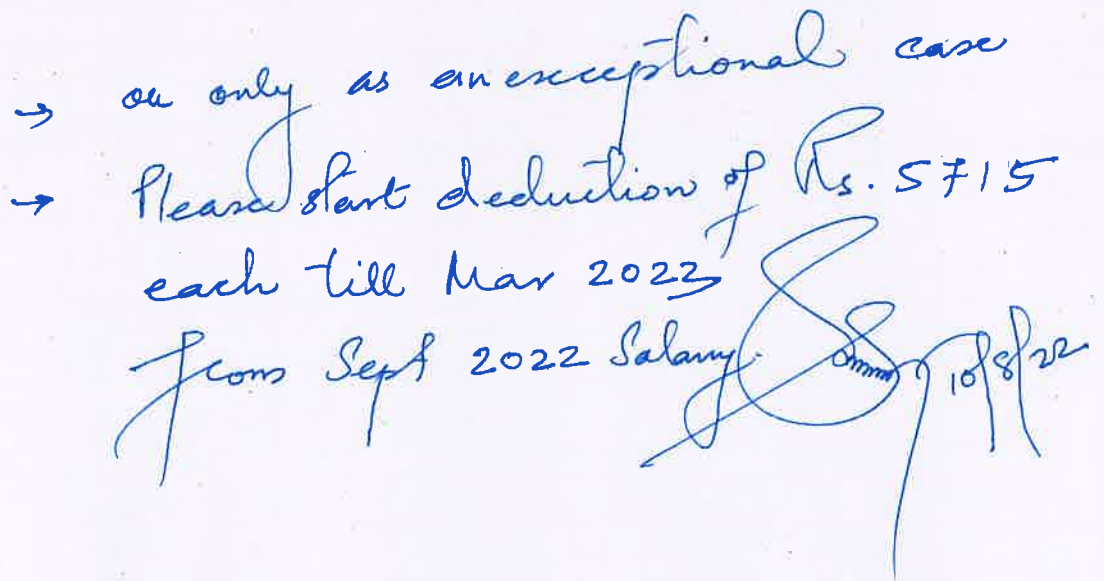 → ok only as an exceptional case
→ Please start deduction of Rs. 5715
each till Mar 2023
from Sept 2022 Salary.
10/8/22